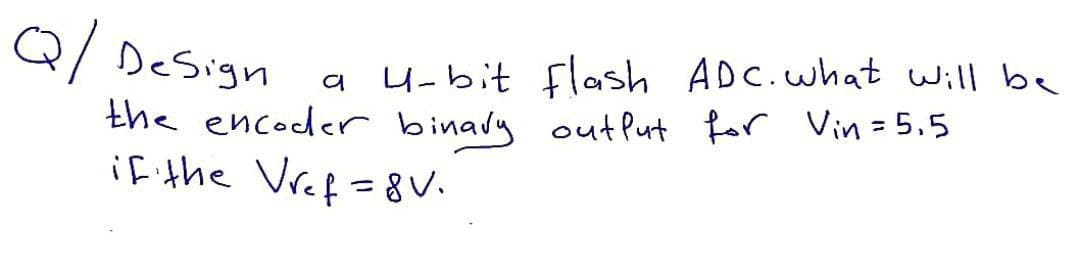 Q/ Design a 4-bit flash ADC. what will be
the encoder binary output for Vin = 5.5
if the Vref = 8V.